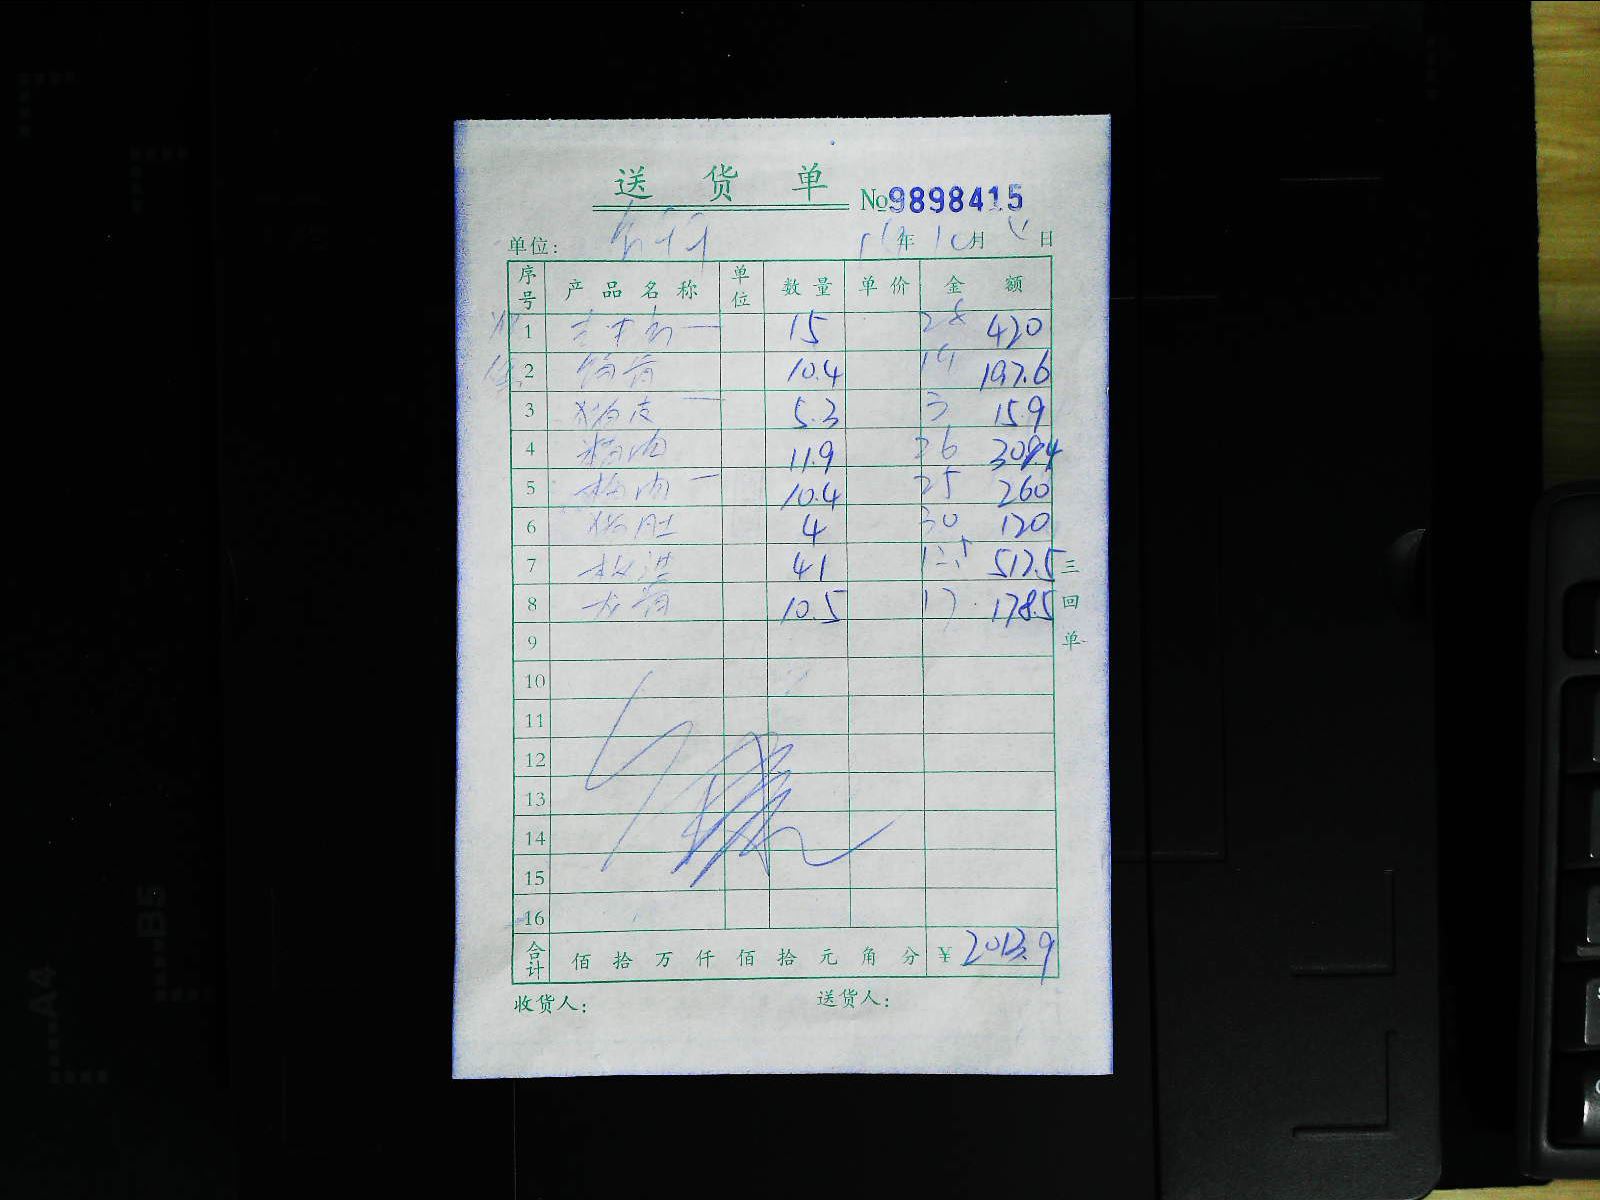 送货单 №9898415
单位: 年 10月 日
序号 产品名称 单位 数量 单价 金额
1 15 28 420
2 10.4 19 197.6
3 猪皮 5.3 3 15.9
4 精肉 11.9 26 309.4
5 梅肉 10.4 25 260
6 猪肚 4 30 120
7 41 12.5 512.5
8 龙骨 10.5 17 178.5
9
10
11
12
13
14
15
16
合计 佰拾万仟佰拾元角分 ¥2013.9
收货人: 送货人:
三回单
A4
B5